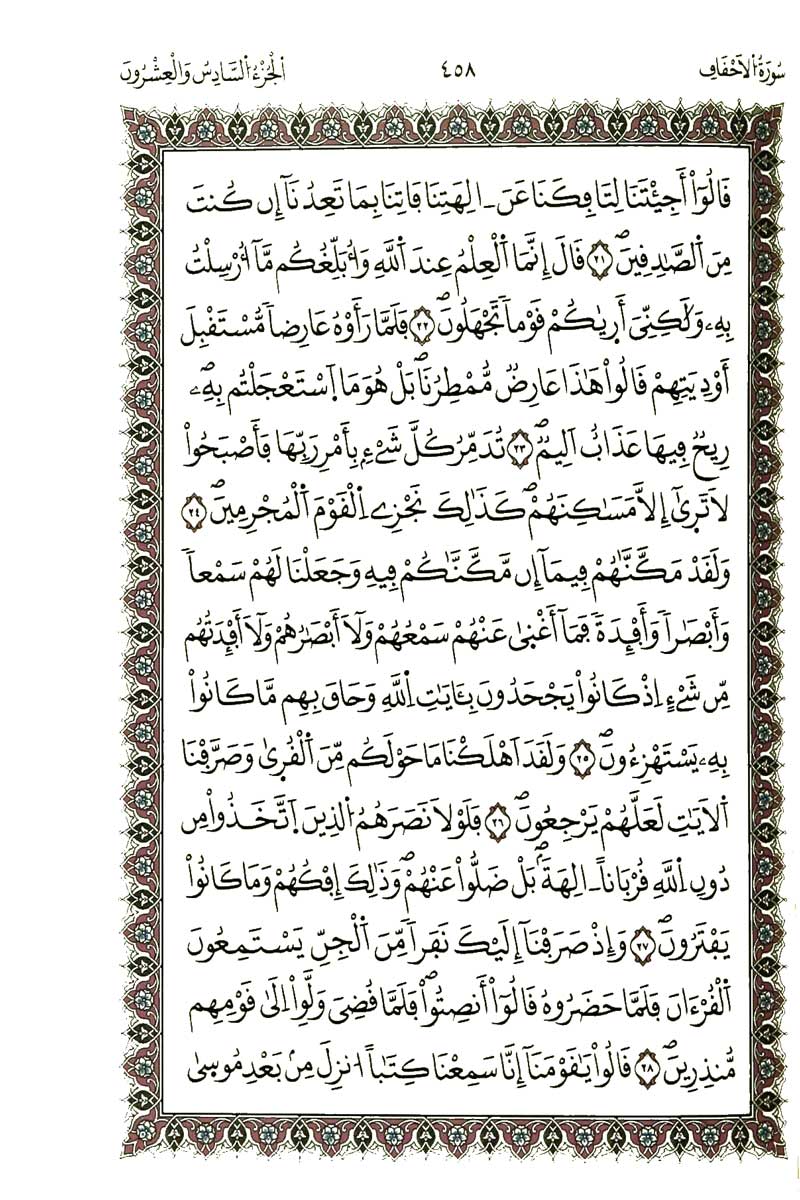 سُورَةُ الَاحْقَافِ ٤٥٨ اَلْجُزْءُ السَّادِسُ وَالْعِشْرُونَ
قَالُوٓاْ أَجِئْتَنَا لِتَافِكَنَا عَنَ ـ الِهَتِنَا فَاتِنَا بِمَا تَعِدُنَآ إِن كُنتَ
مِنَ اَلصَّٰدِقِينَۖ ۝٢١ قَالَ إِنَّمَا اَلْعِلْمُ عِندَ اَللَّهِ وَأُبَلِّغُكُم مَّآ أُرْسِلْتُ
بِهِۦ وَلَٰكِنِّىَ أَر۪يٰكُمْ قَوْماٗ تَجْهَلُونَۖ ۝٢٢ فَلَمَّا رَأَوْهُ عَارِضاٗ مُّسْتَقْبِلَ
أَوْدِيَتِهِمْ قَالُواْ هَٰذَا عَارِضٞ مُّمْطِرُنَاۖ بَلْ هُوَ مَا اَ۪سْتَعْجَلْتُم بِهِۦۖ
رِيحٞ فِيهَا عَذَابٌ اَلِيمٞۖ ۝٢٣ تُدَمِّرُ كُلَّ شَےْءِۢ بِأَمْرِ رَبِّهَا فَأَصْبَحُواْ
لَا تَر۪ىٰٓ إِلَّا مَسَٰكِنَهُمْۖ كَذَٰلِكَ نَجْزِے اِلْقَوْمَ اَلْمُجْرِمِينَۖ ۝٢٤
وَلَقَدْ مَكَّنَّٰهُمْ فِيمَآ إِن مَّكَّنَّٰكُمْ فِيهِ وَجَعَلْنَا لَهُمْ سَمْعاٗ
وَأَبْصَٰراٗ وَأَفْـِٕدَةٗ فَمَآ أَغْن۪ىٰ عَنْهُمْ سَمْعُهُمْ وَلَآ أَبْصَٰرُهُمْ وَلَآ أَفْـِٕدَتُهُم
مِّن شَےْءٍ اِذْ كَانُواْ يَجْحَدُونَ بِـَٔايَٰتِ اِللَّهِ وَحَاقَ بِهِم مَّا كَانُواْ
بِهِۦ يَسْتَهْزِءُونَۖ ۝٢٥ وَلَقَدَ اَهْلَكْنَا مَا حَوْلَكُم مِّنَ اَلْقُر۪ىٰ وَصَرَّفْنَا
اَلَايَٰتِ لَعَلَّهُمْ يَرْجِعُونَۖ ۝٢٦ فَلَوْلَا نَصَرَهُمُ اُلذِينَ اَ۪تَّخَذُواْ مِن
دُونِ اِللَّهِ قُرْبَاناً ـ الِهَةَۢۖ بَلْ ضَلُّواْ عَنْهُمْۖ وَذَٰلِكَ إِفْكُهُمْ وَمَا كَانُواْ
يَفْتَرُونَۖ ۝٢٧ وَإِذْ صَرَفْنَآ إِلَيْكَ نَفَراٗ مِّنَ اَلْجِنِّ يَسْتَمِعُونَ
اَلْقُرْءَانَ فَلَمَّا حَضَرُوهُ قَالُوٓاْ أَنصِتُواْۖ فَلَمَّا قُضِيَ وَلَّوِاْ اِلَىٰ قَوْمِهِم
مُّنذِرِينَۖ ۝٢٨ قَالُواْ يَٰقَوْمَنَآ إِنَّا سَمِعْنَا كِتَٰباً اُنزِلَ مِنۢ بَعْدِ مُوس۪ىٰ